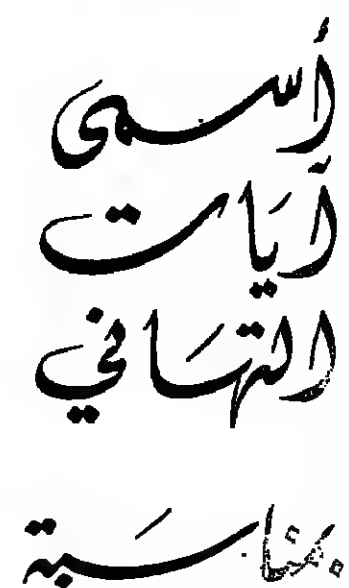 أسمى
آيات
التهاني
بمناسبة